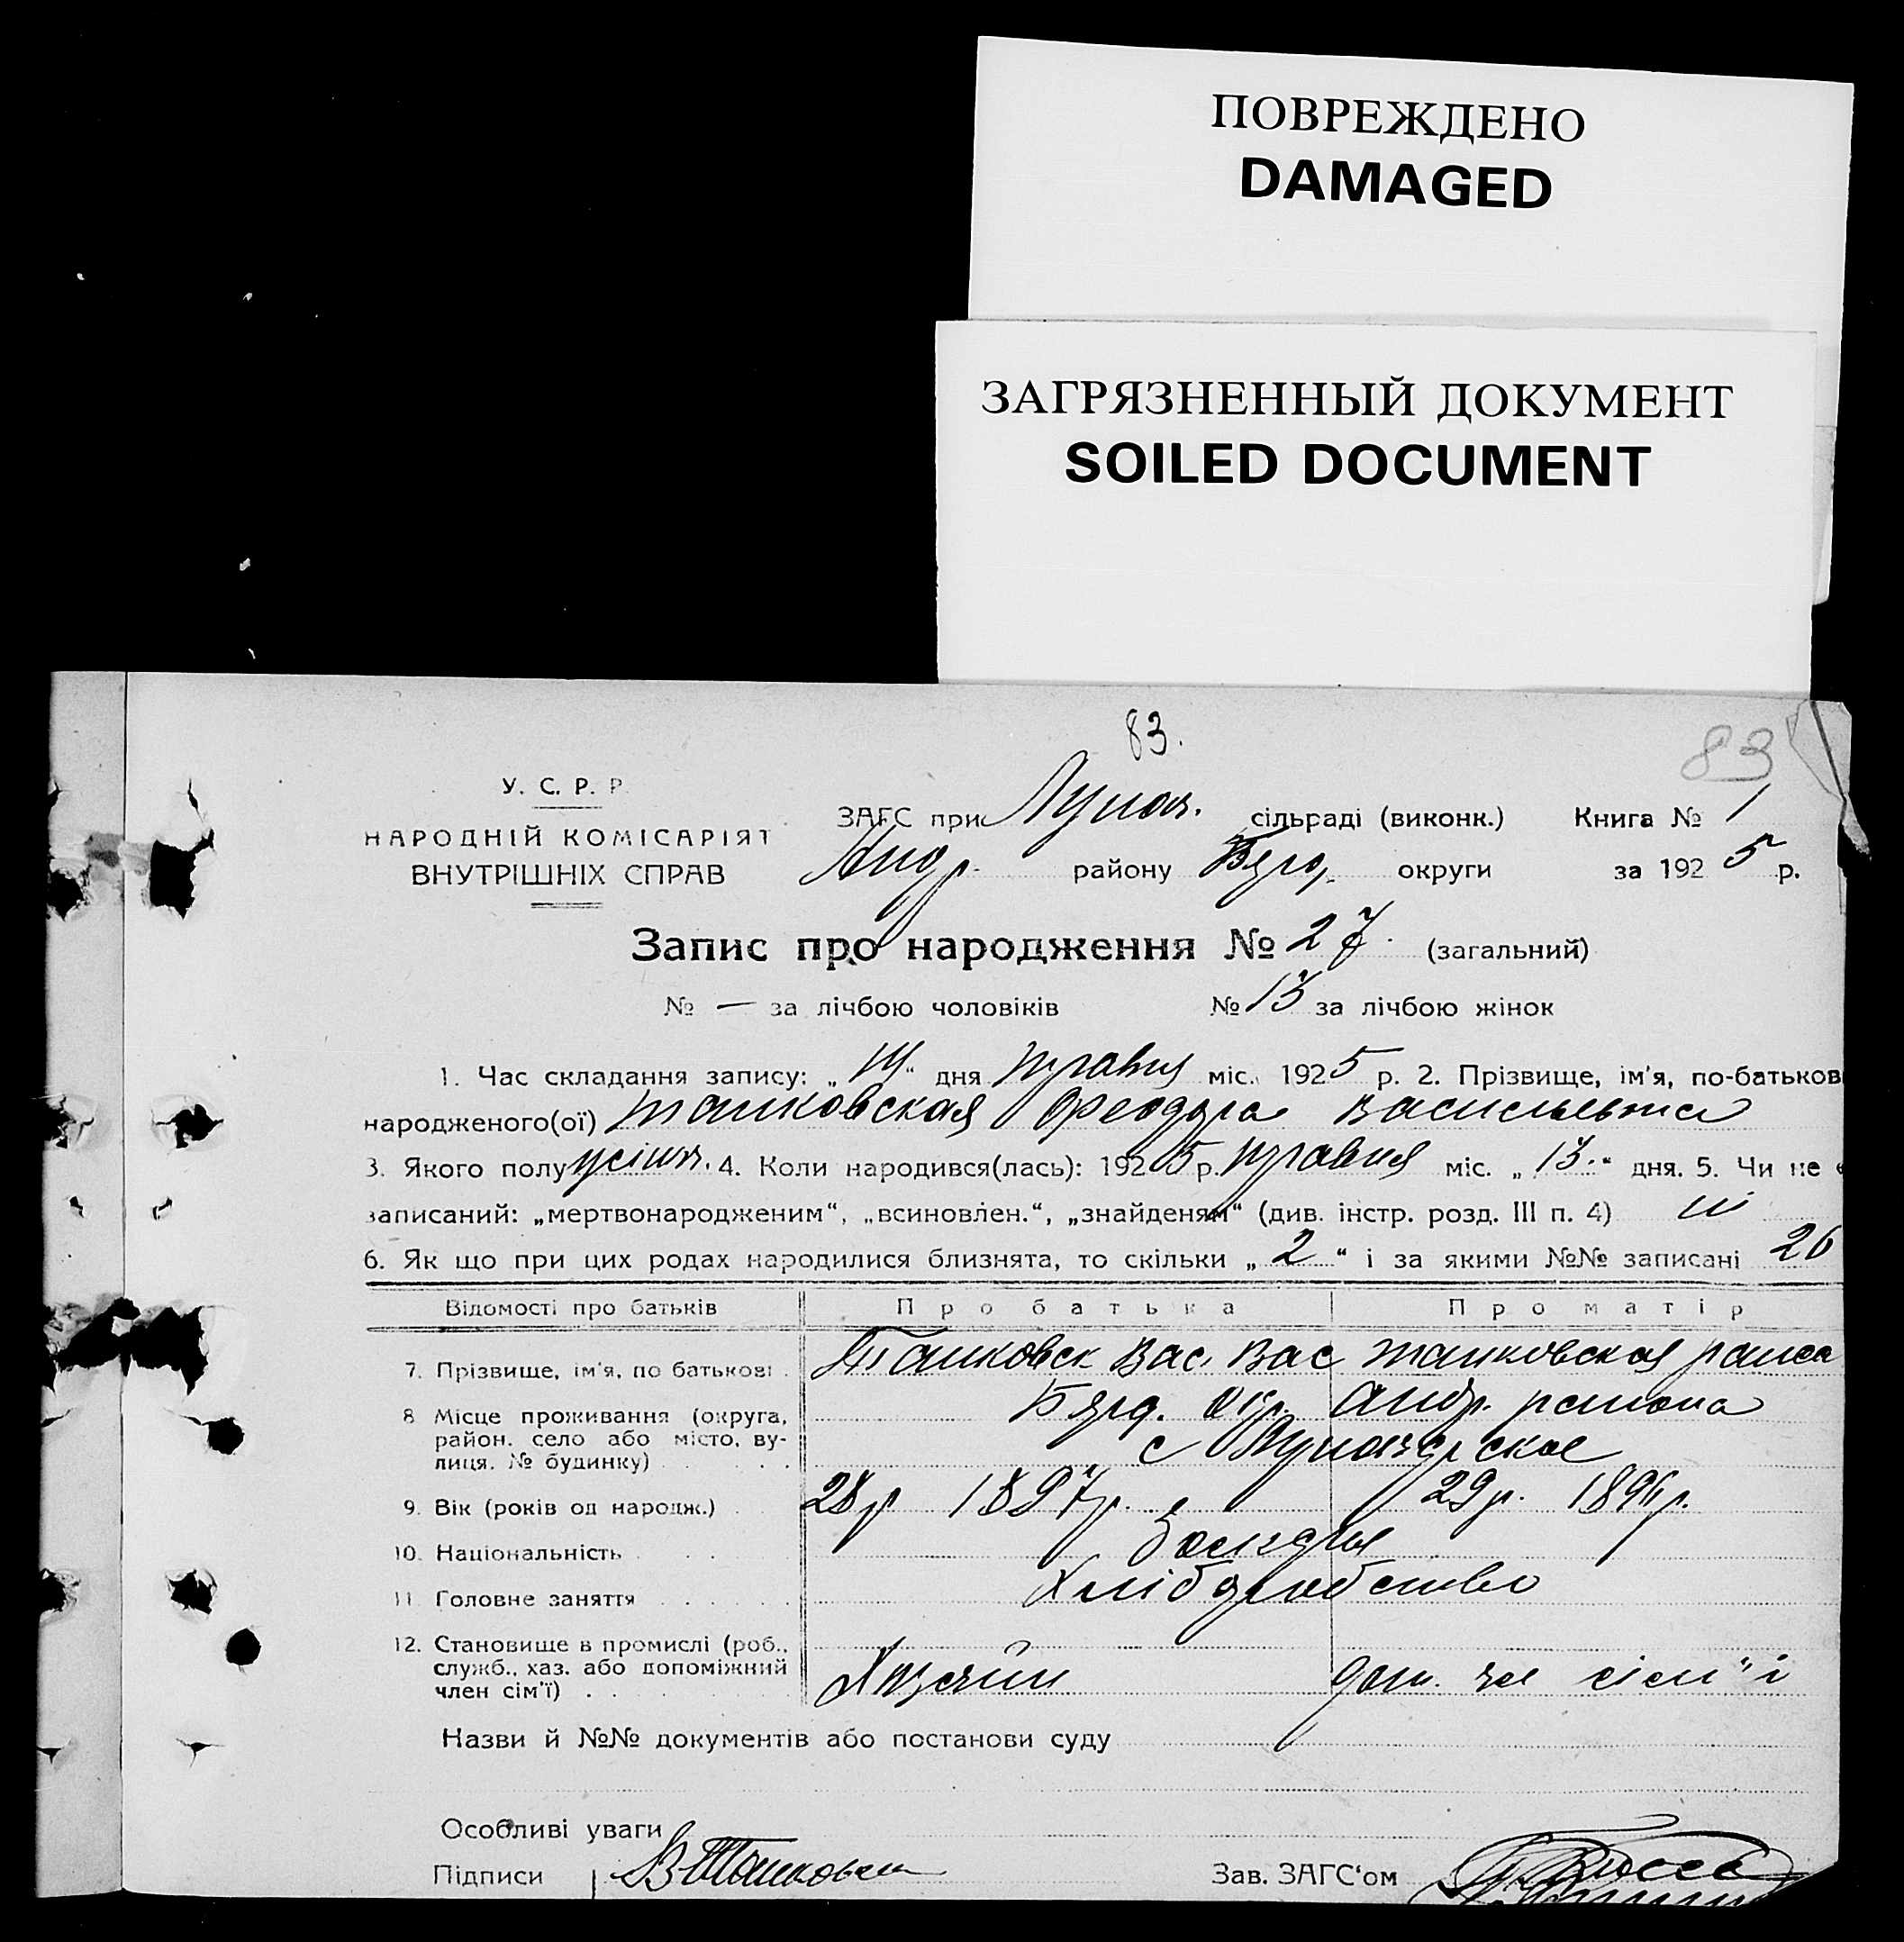 ПОВРЕЖДЕНО
DAMAGED
ЗАГРЯЗНЕННЫЙ ДОКУМЕНТ
SOILED DOCUMENT
83.
83
У. С. Р. Р.
НАРОДНІЙ КОМІСАРІЯТ
ВНУТРІШНІХ СПРАВ
ЗАГС при Луном. сільраді (виконк.) Книга № 1
Андр. району Бърд. округи за 1925 р.
Запис про народження № 27. (загальний)
№ — за лічбою чоловіків № 13 за лічбою жінок
1. Час складання запису: „14“ дня травня міс. 1925 р. 2. Прізвище, ім'я, по-батькові
народженого(ої) Танковская Феодора Васильевна
3. Якого полу жіноч. 4. Коли народився(лась): 1925 р. травня міс. „13.“ дня. 5. Чи не є
записаний: „мертвонародженим“, „всиновлен.“, „знайденям“ (див. інстр. розд. III п. 4) ні
6. Як що при цих родах народилися близнята, то скільки „2“ і за якими №№ записані 26
Відомості про батьків Про батька Про матір
7. Прізвище, ім'я, по батькові . Танковск Вас. Вас Танковская раиса
8 Місце проживання (округа, район. село або місто, вулиця. № будинку) Бърд. окр. Андр. района
с
9. Вік (років од народж.) 28 р 1897 р. 29 р. 1896 р.
10. Національність болгары
11 Головне заняття Хліборобство
12. Становище в промислі (роб., служб., хаз. або допоміжний член сім'ї) . . Хозяїн доп. чл сім"ї
Назви й №№ документів або постанови суду
Особливі уваги
Підписи В Танковск Зав. ЗАГС'ом